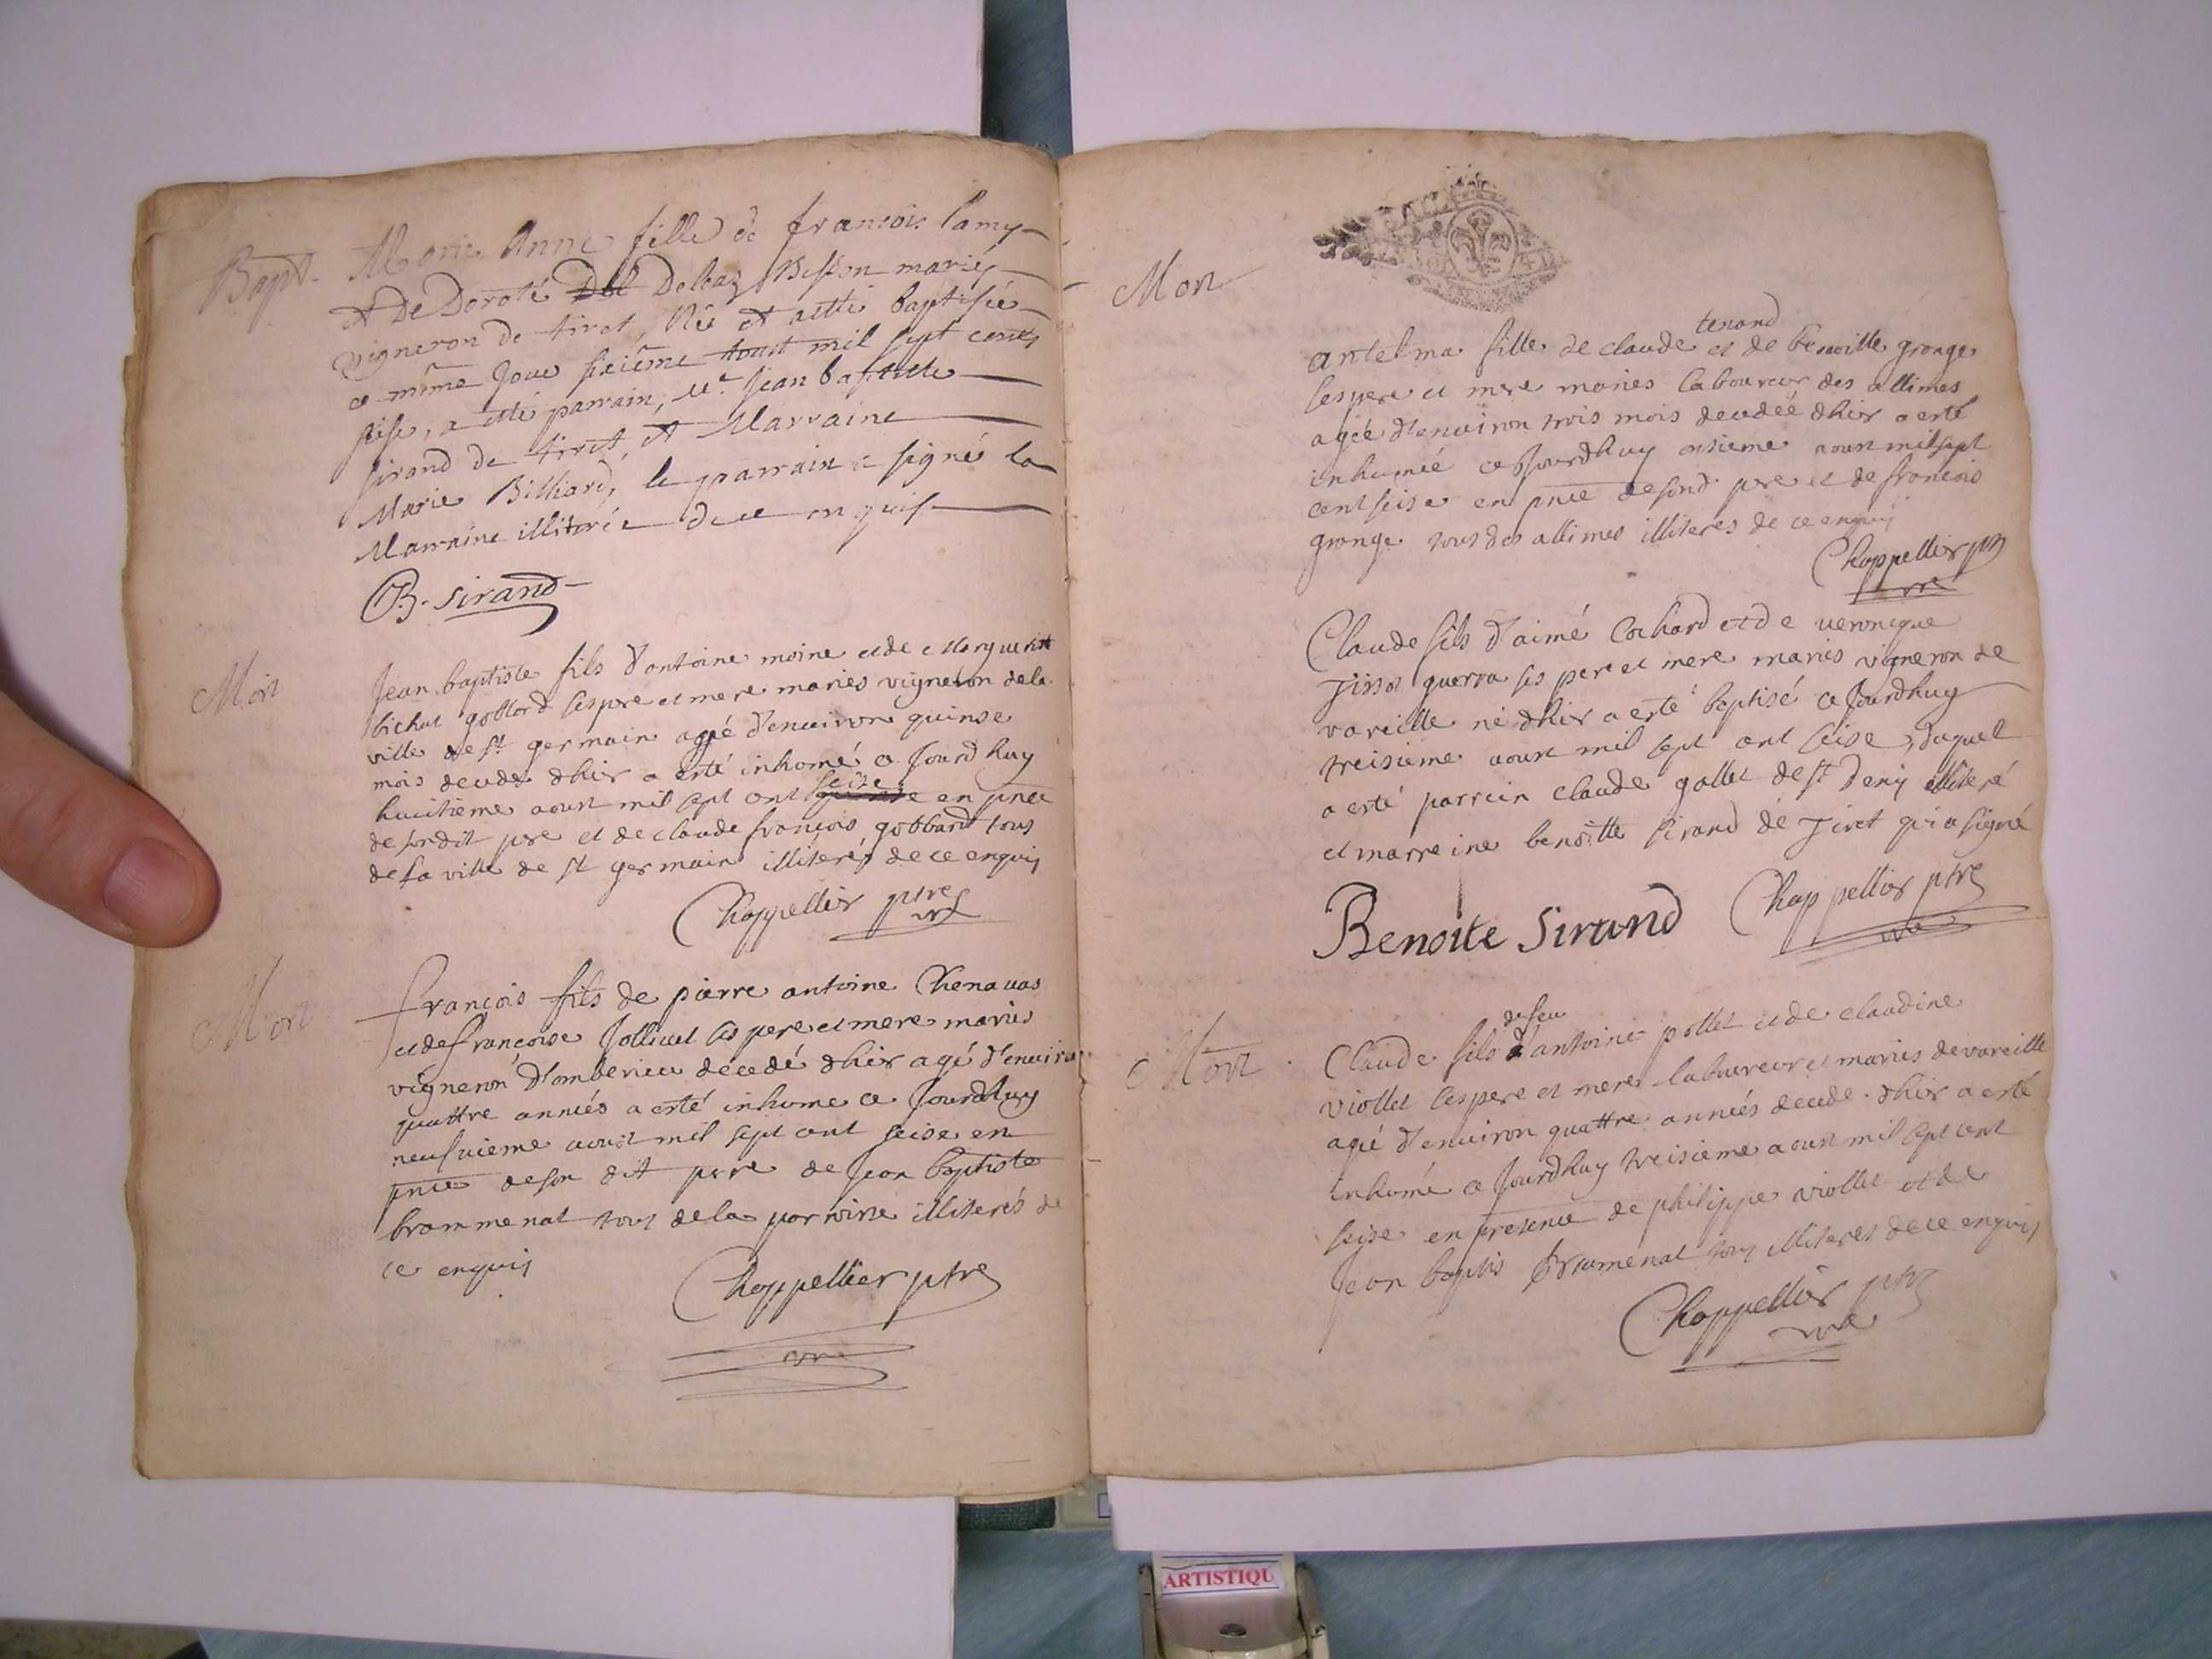 Bapt.
Marie Anne fille de françois lamy
et De Doroté Debaz Bisson mariez
vigneron de tiret, Née et attée baptisée
ce même Jour sixiême aoust mil sept cents
seise, a etté parrain, Mr. Jean baptiste
sirand de tiret, et Marraine
Marie Billiard, le parrain a signé la
Marraine illiterée de ce enquise
B. Sirand
Mort
Jean baptiste fils d'antoine moine et de Marguerite
bichat gobbard ses pere et mere mariés vigneron de la
ville de st germain agé d'enuiron quinse
mois decedé dhier a esté inhumé ce Jourdhuy
huictieme aoust mil sept cent seise en pnce
de son dit pere et de claude françois gobbard tous
de la ville de st germain illiterés de ce enquis
Chappellier ptre
Mort
françois fils de pierre antoine Chenauas
et de françoise Jolliuet ses pere et mere mariés
vigneron d'amberieu decedé dhier agé d'enuiron
quattre années a esté inhumé ce Jourdhuy
neufuieme aoust mil sept cent seise en
pnce de son dit pere de Jean baptiste
brammenat tous de la parroisse illiterés de
ce enquis
Chappellier ptre
Mort
tenand
antelma fille de claude et de benoitte grange
ses pere et mere mariés laboureur des allimes
agée d'enuiron trois mois decedée dhier a esté
inhumée ce Jourdhuy onsieme aoust mil sept
cent seise en pnce de sond. pere et de françois
grange tous des allimes illiterés de ce enquis
Chappellier ptre
Claude fils d'aimé Cochard et de ueronique
Tissot guerra ses pere et mere mariés vigneron de
vareille né dhier a esté baptisé ce Jourdhuy
treisieme aoust mil sept cent seise, duquel
a esté parrein claude gallet de st Deny illiteré
et marreine benoitte sirand de Tiret qui a signé
Benoite Sirand
Chappellier ptre
Mort
de feu
Claude fils d'antoine pollet et de claudine
viollet ses pere et mere laboureur et mariés de vareille
agé d'enuiron quattre années decedé dhier a esté
inhumé ce Jourdhuy treisieme aoust mil sept cent
seise en presence de philippe viollet et de
Jean baptis bramenat tous illiteres de ce enquis
Chappellier ptre
ARTISTIQU